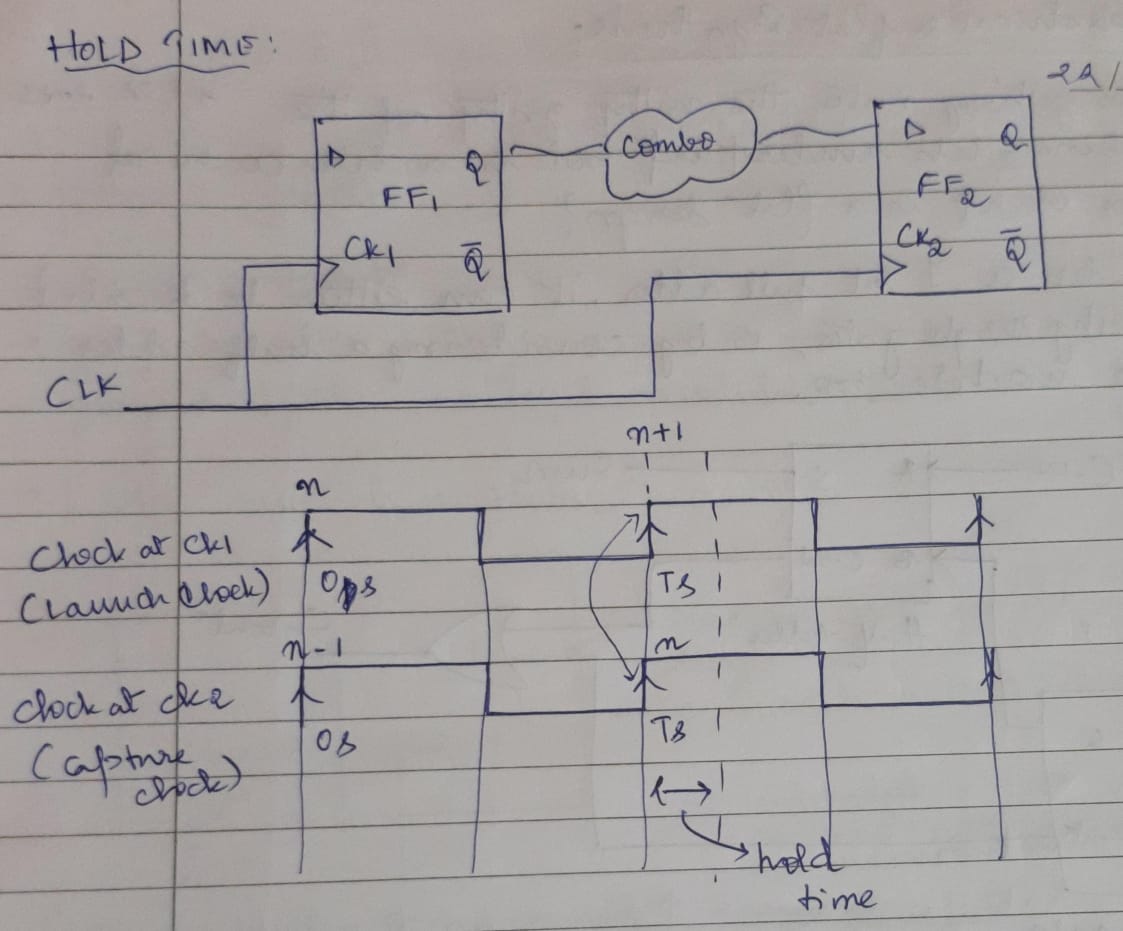 HOLD TIME:
D Q
FF1
CK1 Q̅
Combo
D Q
FF2
CK2 Q̅
CLK
n+1
n
Clock at CK1
(Launch Clock)
0ps
Ts
n-1
n
Clock at CK2
(Capture
clock)
0s
Ts
hold
time